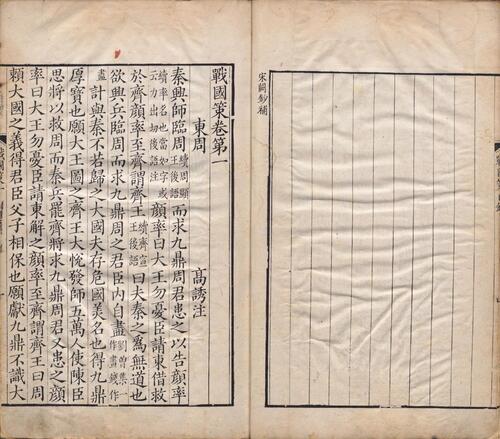 宋闕鈔補
戰國策卷第一
東周 高誘注
秦興師臨周續周顯王後語而求九鼎周君患之以告顔率
續率名也當如字或云力出切後語注顔率曰大王勿憂臣請東借救
於齊顔率至齊謂齊王續齊宣王後語曰夫秦之爲無道也
欲興兵臨周而求九鼎周之君臣内自盡劉曾集一作畫錢作
盡計與秦不若歸之大國夫存危國美名也得九鼎
厚寶也願大王圖之齊王大恱發師五萬人使陳臣
思將以救周而秦兵罷齊將求九鼎周君又患之顔
率曰大王勿憂臣請東解之顔率至齊謂齊王曰周
賴大國之義得君臣父子相保也願獻九鼎不識大